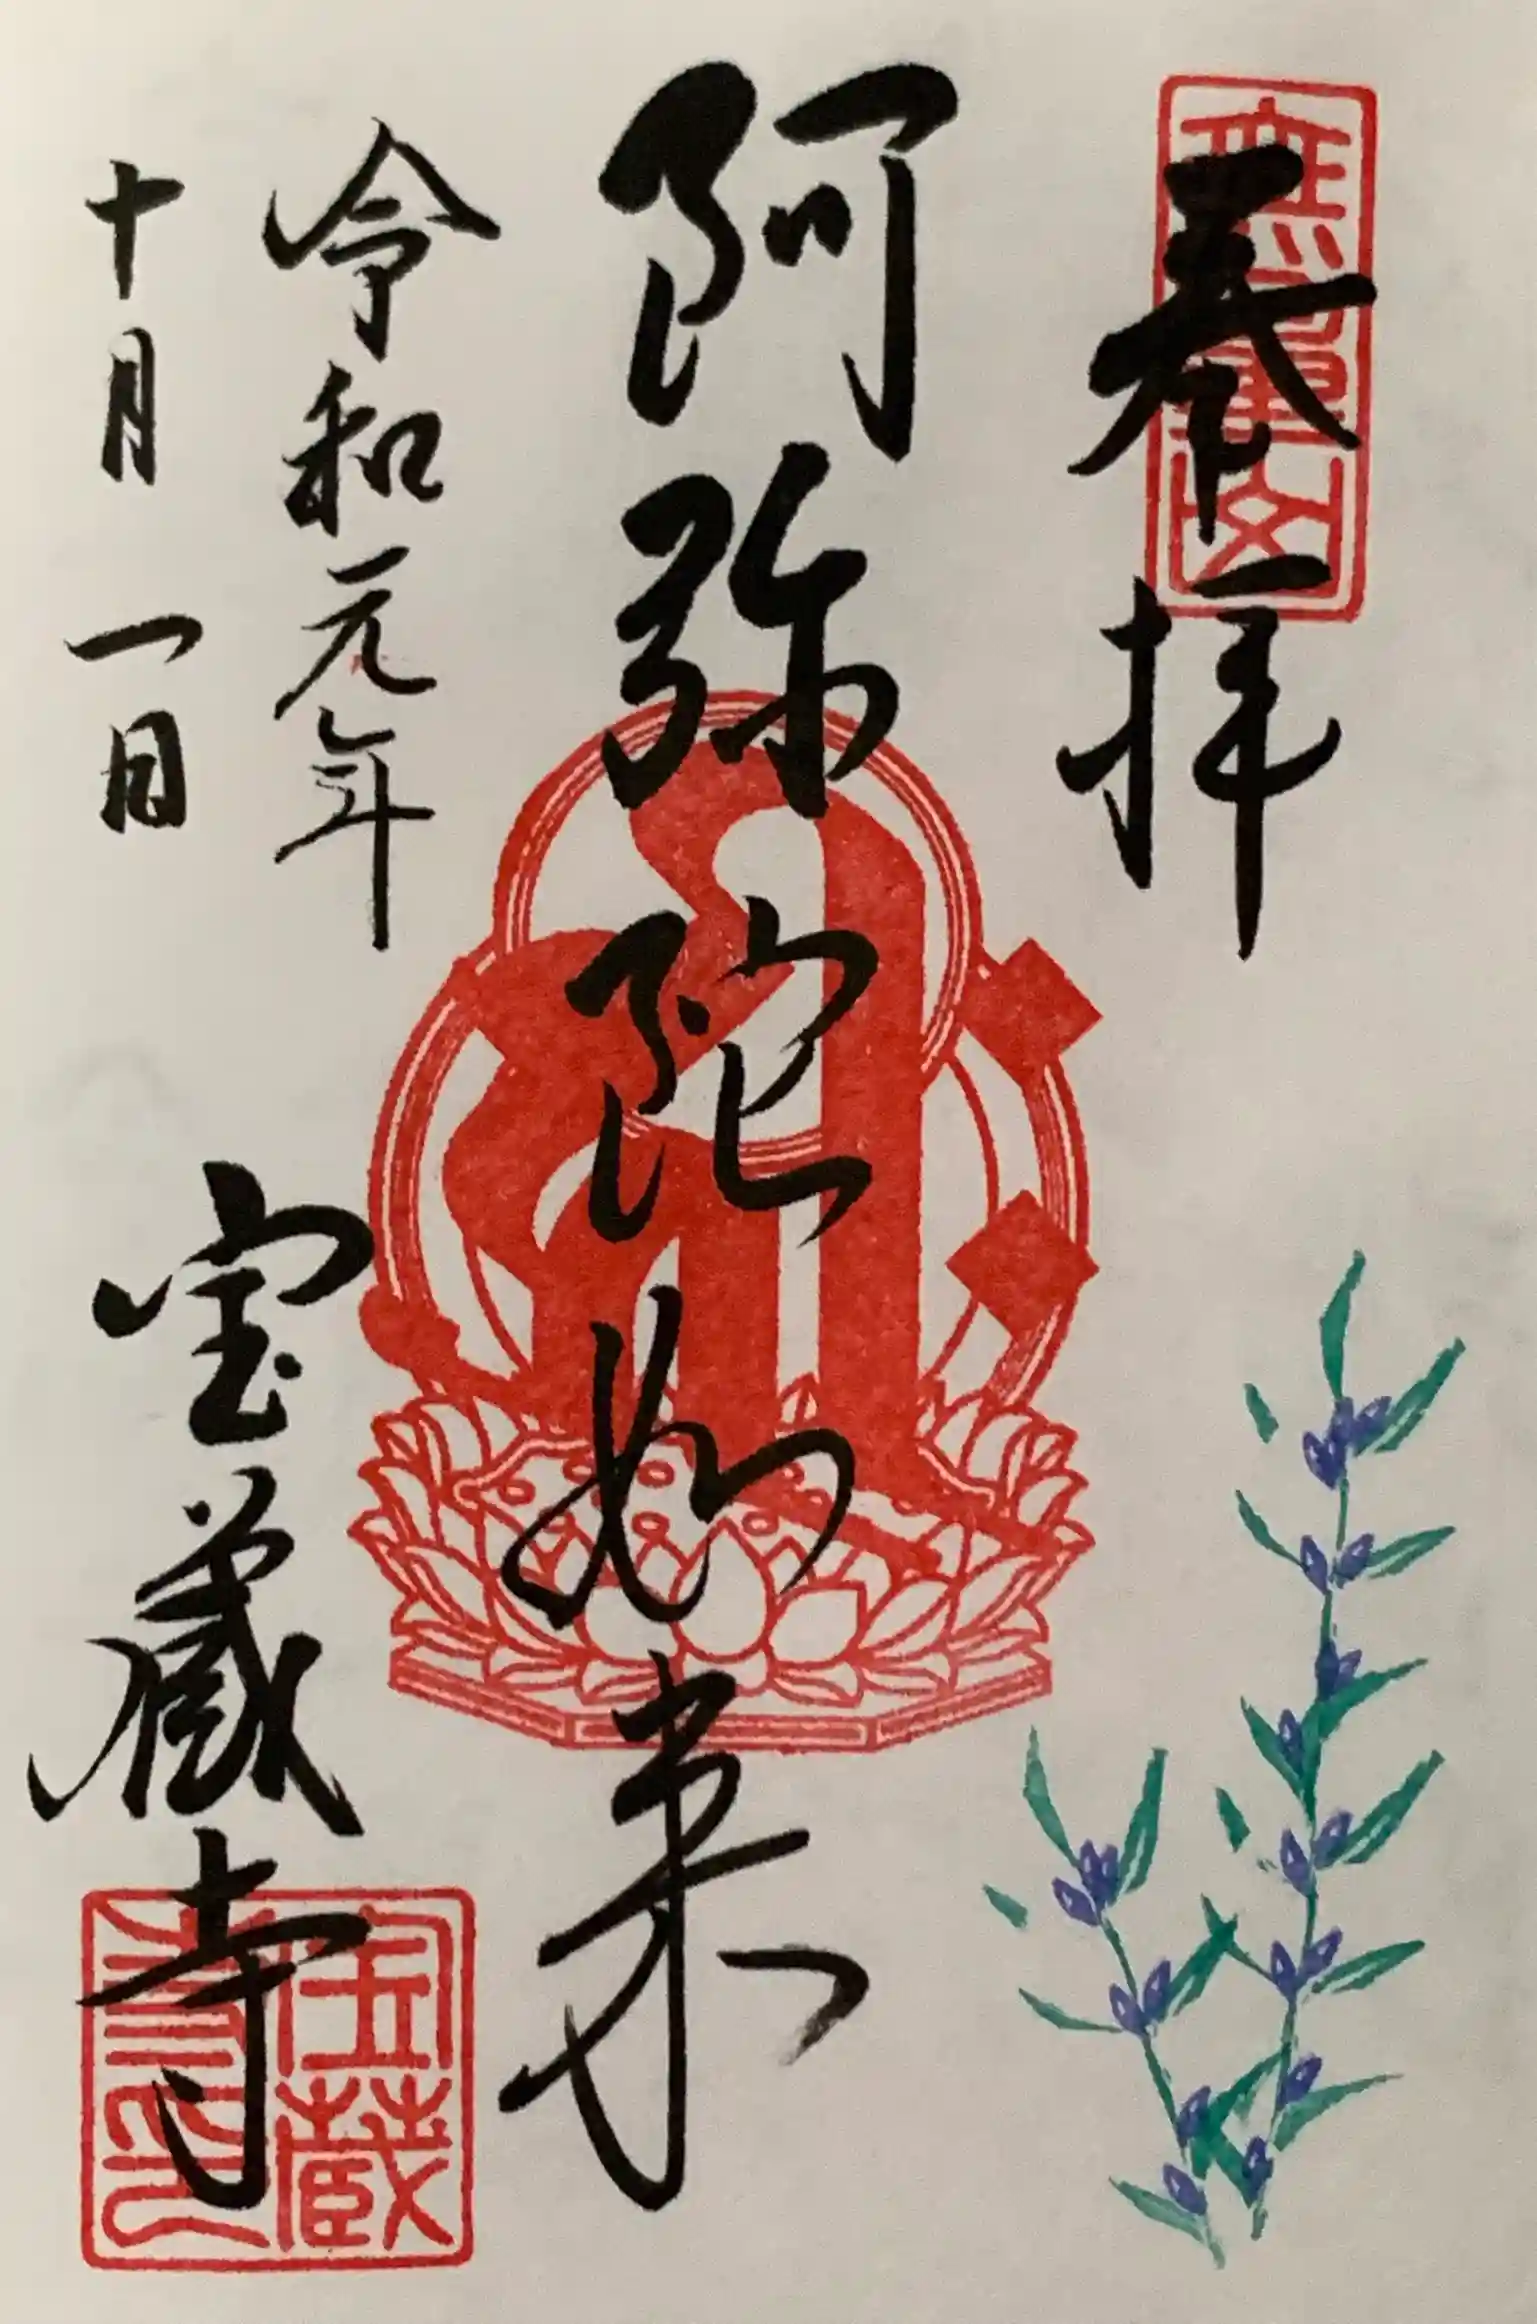 奉拝
阿弥陀如来
令和元年
十月一日
宝蔵寺
宝蔵
寺印